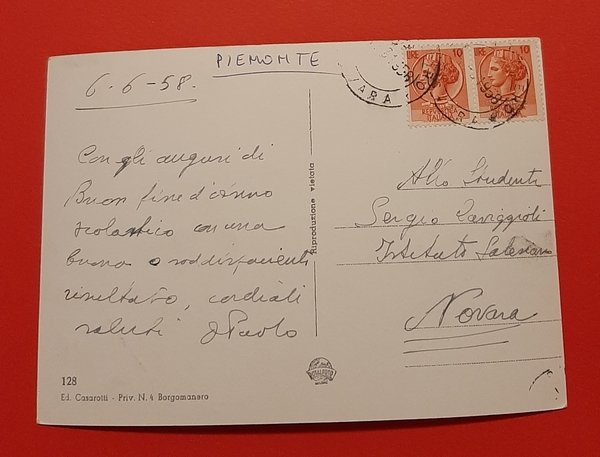 PIEMONTE
6-6-58.
Con gli auguri di
Buon fine d'anno
scolastico con una
buona e soddisfacente
risultato, cordiali
saluti Paolo
Riproduzione vietata
LIRE 10
10
REP
ITALIANA
ITALIANA
Allo Studente
Sergio
Istituto Salesiano
Novara
128
Ed. Casarotti - Priv. N. 4 Borgomanero